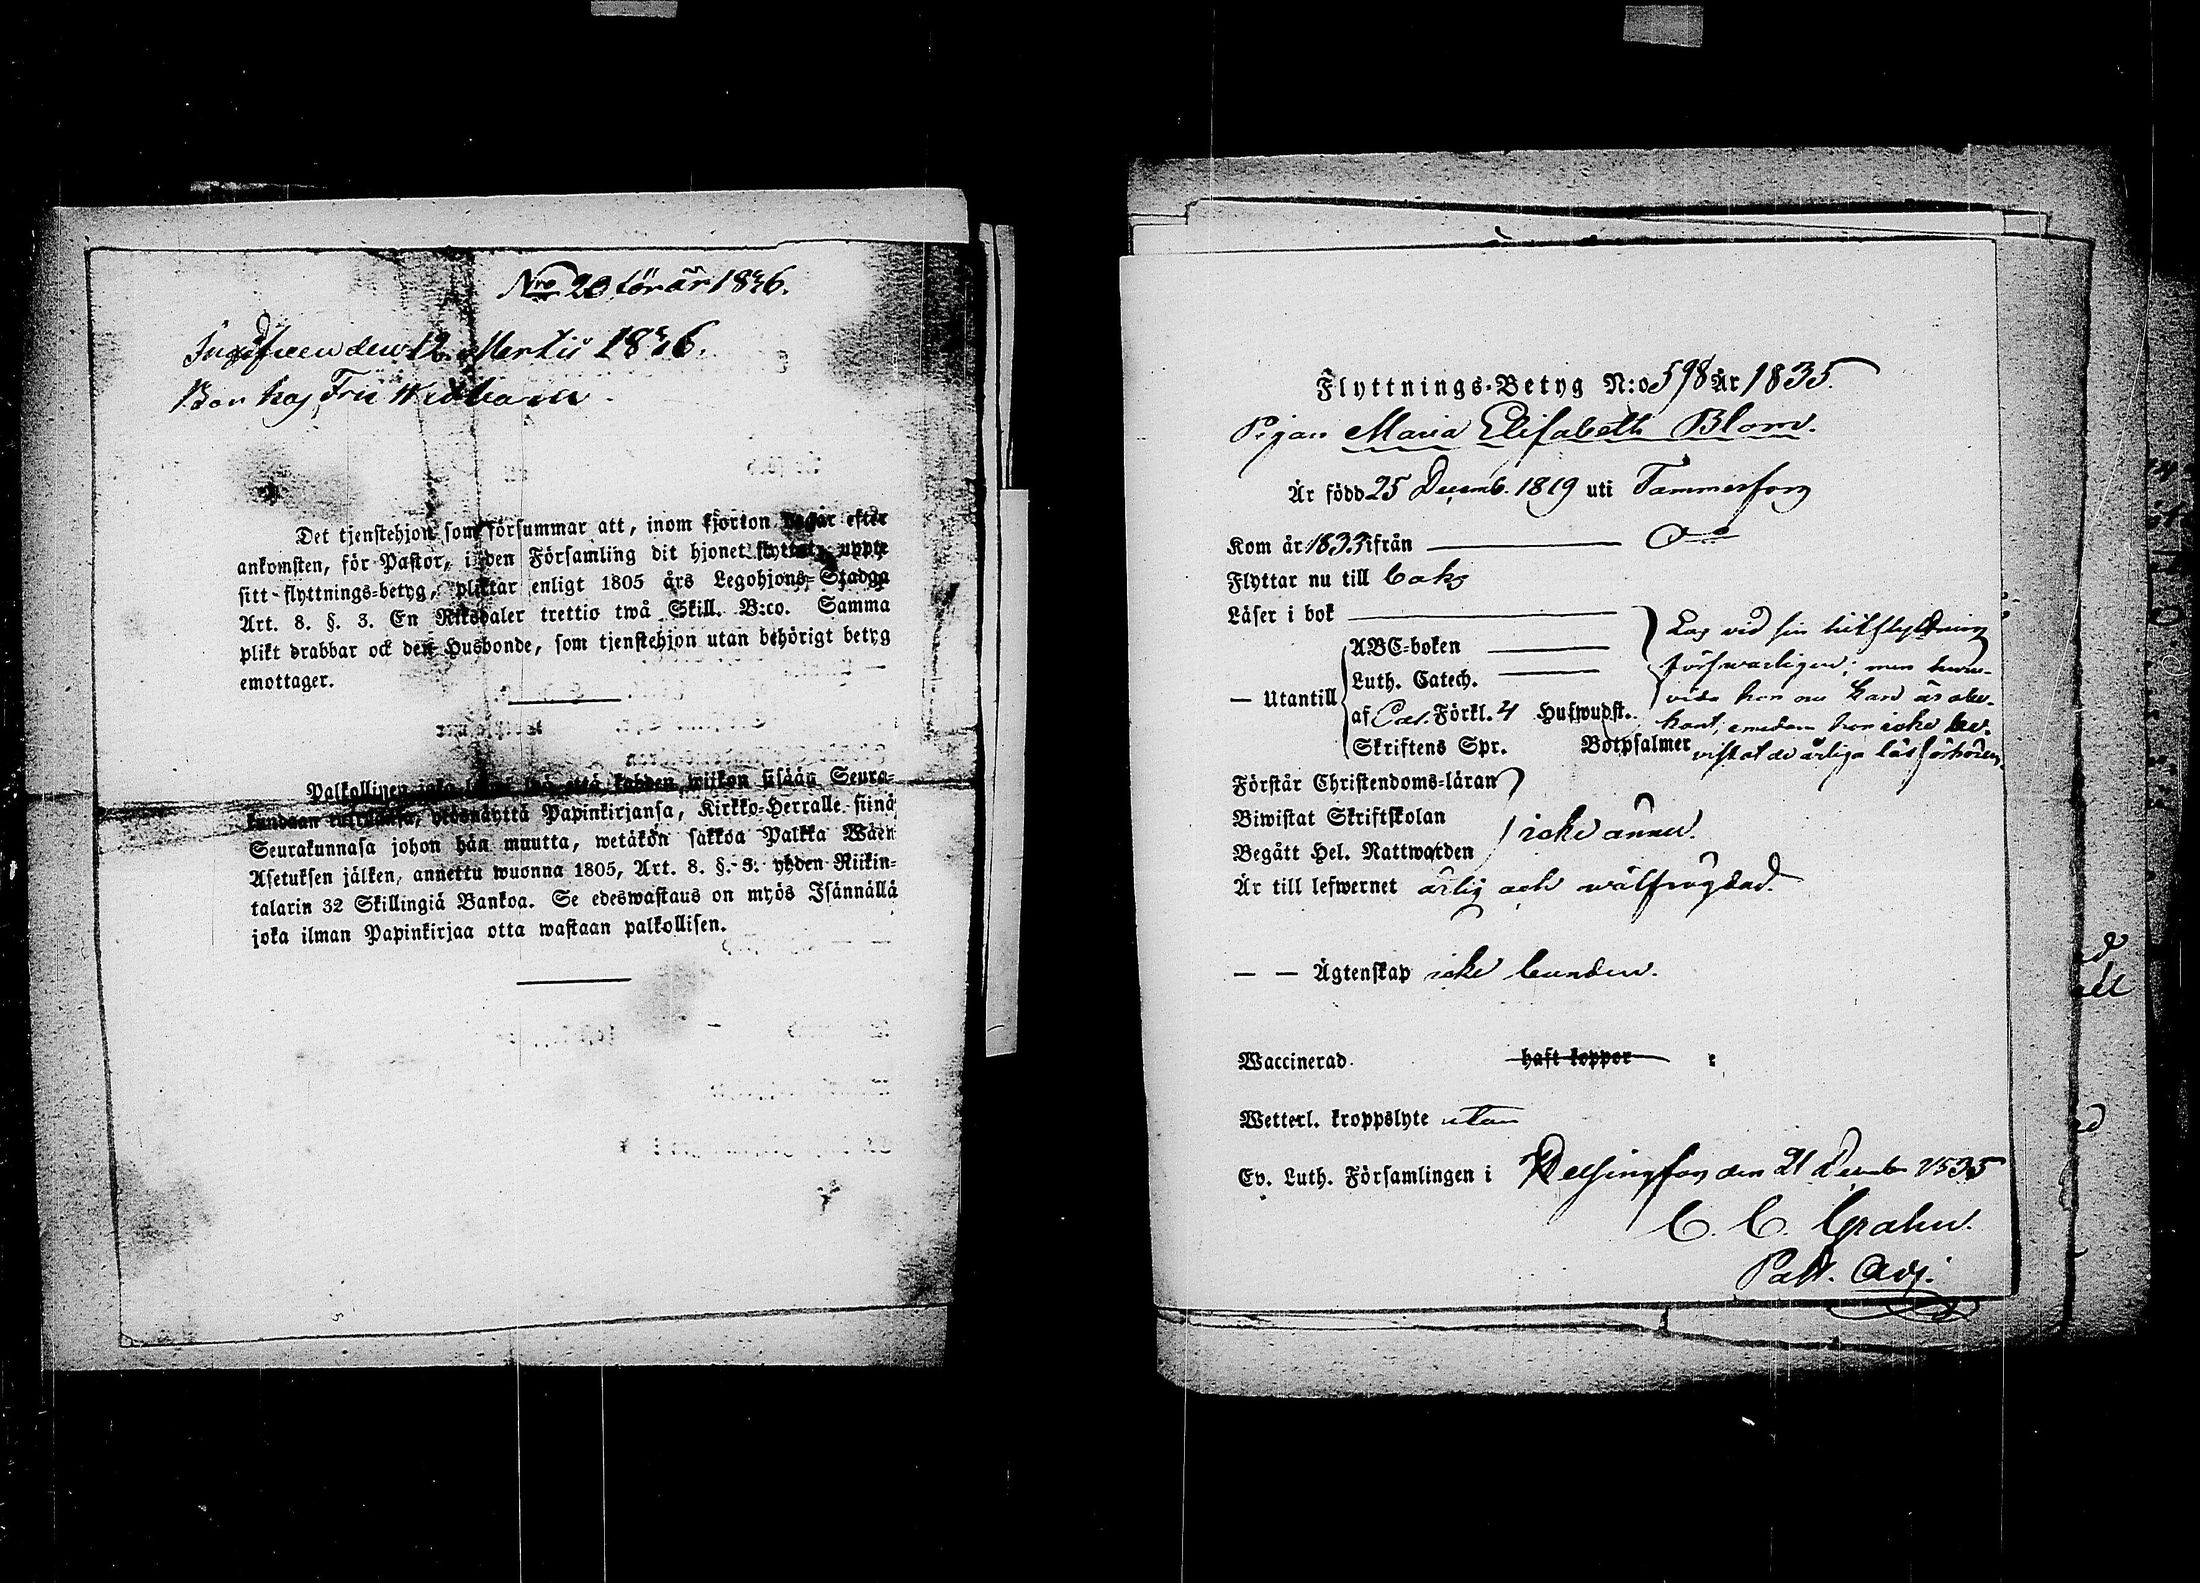 Nro 20 för år 1836.
Ingifven den 12 Martii 1836.
Bor hos Fru
Det tjenstehjon som försummar att, inom fjorton dagar efter
ankomsten, för Pastor, i den Församling dit hjonet flyttat, uppte
sitt flyttnings=betyg, pliktar enligt 1805 års Legohjons=Stadga
Art. 8. §. 3. En Riksdaler trettio twå Skill. B:co. Samma
plikt drabbar ock den Husbonde, som tjenstehjon utan behörigt betyg
emottager.
Palkollinen joka kahden wiikon sisään Seura-
kundaan Papinkirjansa, Kirkko=Herralle siinä
Seurakunnasa johon hän muutta, wetäkön sakkoa Palkka Wäen
Asetuksen jälken, annettu wuonna 1805, Art. 8. §. 3. yhden Riikin-
talarin 32 Skillingiä Bankoa. Se edeswastaus on myös Isännällä
joka ilman Papinkirjaa otta wastaan palkollisen.
Flyttnings=Betyg N:o 598 År 1835.
Pigan Maria Elisabeth Blom.
Är född 25 Decemb. 1819 uti Tammerfors
Kom år 1833 ifrån
Flyttar nu till
Läser i bok
Las vid sin hitflyttning
ABC=boken
försvarligen; men huru-
Luth. Catech.
vida hon nu kan är obe-
— Utantill
af Förkl. 4 Huswudst.
kant, emedan hon icke be-
Skriftens Spr. Botpsalmer
vistat de årliga läsförhören.
Förstår Christendoms=läran
Biwistat Skriftskolan
icke ännu.
Begått Hel. Nattwarden
Är till lefwernet ärlig och wälfrägdad.
— — Ägtenskap icke bunden.
Waccinerad haft koppor
Wetterl. kroppslyte utan
Ev. Luth. Församlingen i Helsingfors den 21 Decemb 1835
C. C. Grahn.
Past. Adj.